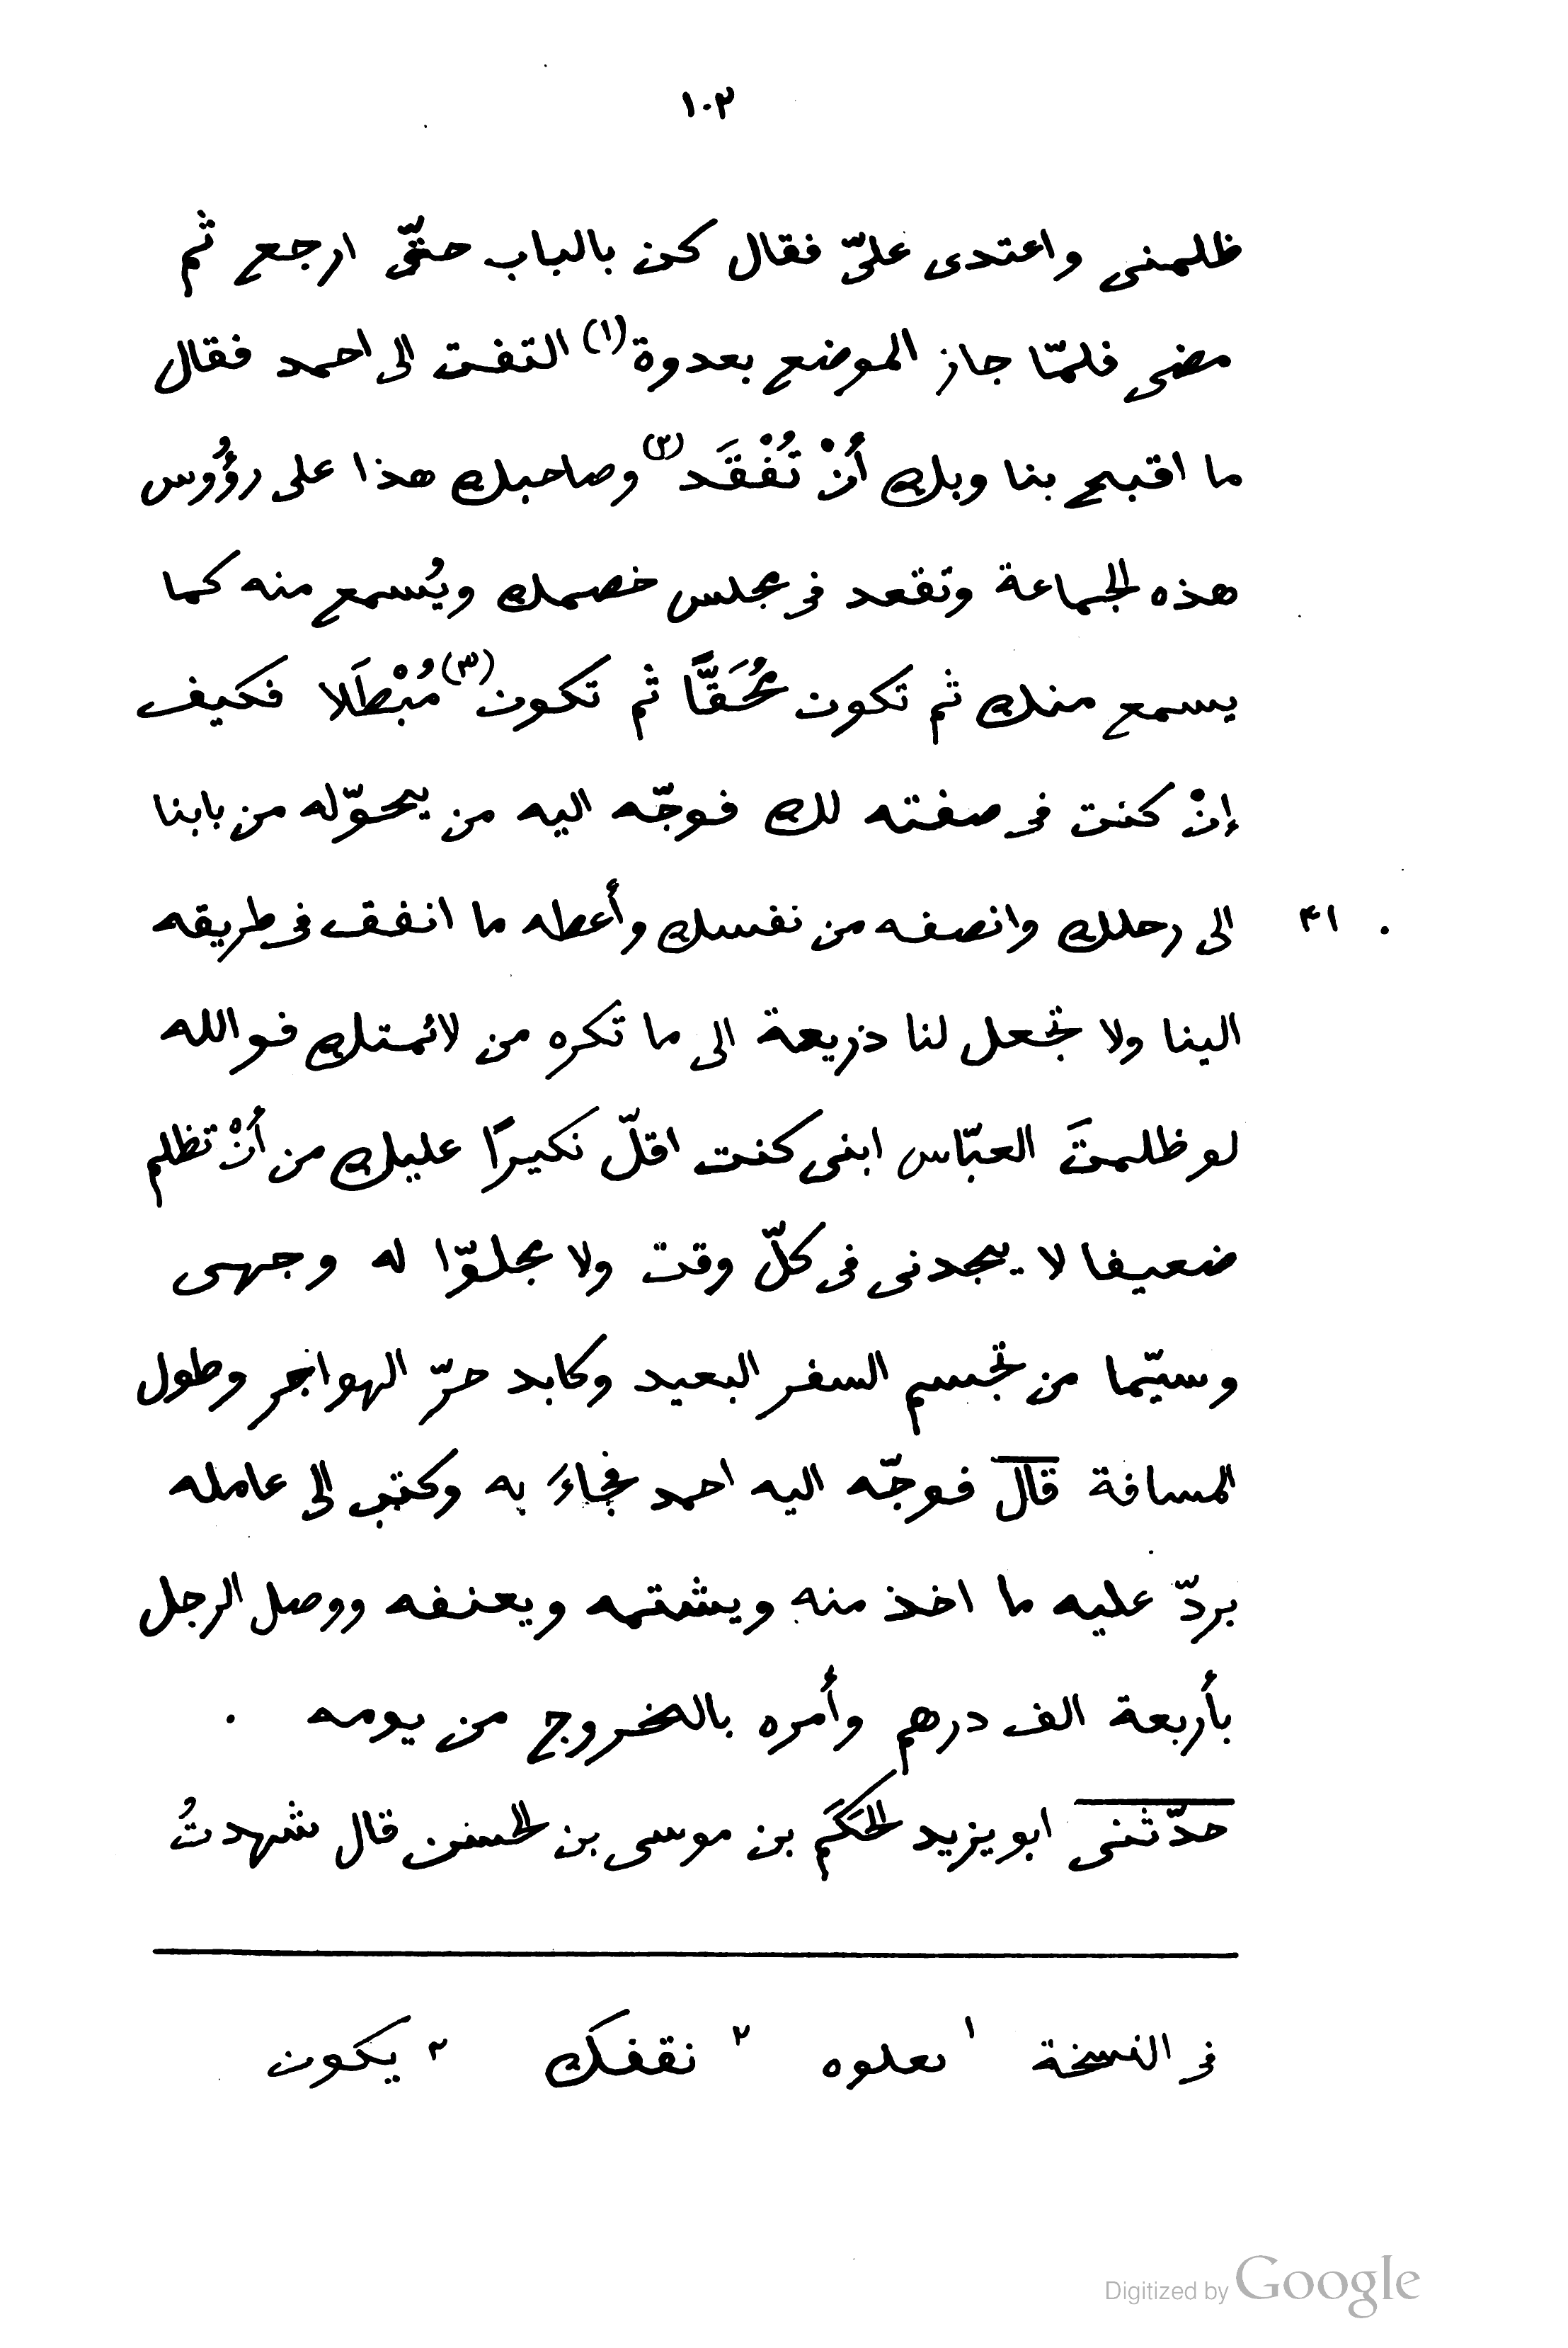 ١٠٣
ظلمنى واعتدى علىّ فقال كن بالباب حتّى ارجع ثم
مضى فلمّا جاز الموضع بعدوة (١) التفت الى احمد فقال
ما اقبح بنا وبك أنْ تُفْقَد (٢) وصاحبك هذا على رؤُوس
هذه الجماعة وتقعد فى مجلس خصمك ويُسمع منه كما
يسمع منك ثم تكون مُحَقًّا ثم تكون (٣) مُبْطَلا فكيف
إنْ كنت فى صفته لك فوجّه اليه من يحوّله من بابنا
الى رحلك وانصفه من نفسك وأعطه ما انفق فى طريقه ٤١
الينا ولا تجعل لنا ذريعة الى ما تكره من لائمتك فوالله
لو ظلمتَ العبّاس ابنى كنت اقلّ نكيرًا عليك من أنْ تظلم
ضعيفا لا يجدنى فى كلّ وقت ولا مجلوّا له وجهى
وسيّما من تجسم السفر البعيد وكابد حرّ الهواجر وطول
المسافة قال فوجّه اليه احمد فجاءَ به وكتب الى عامله
بردّ عليه ما اخذ منه ويشتمه ويعنفه ووصل الرجل
بأربعة الف درهم وأمره بالخروج من يومه .
حدّثنى ابو يزيد الحَكَم بن موسى بن الحسن قال شهدتُ
فى النسخة ١ ىعلوه ٢ نقفك ٣ يكون
Digitized by Google